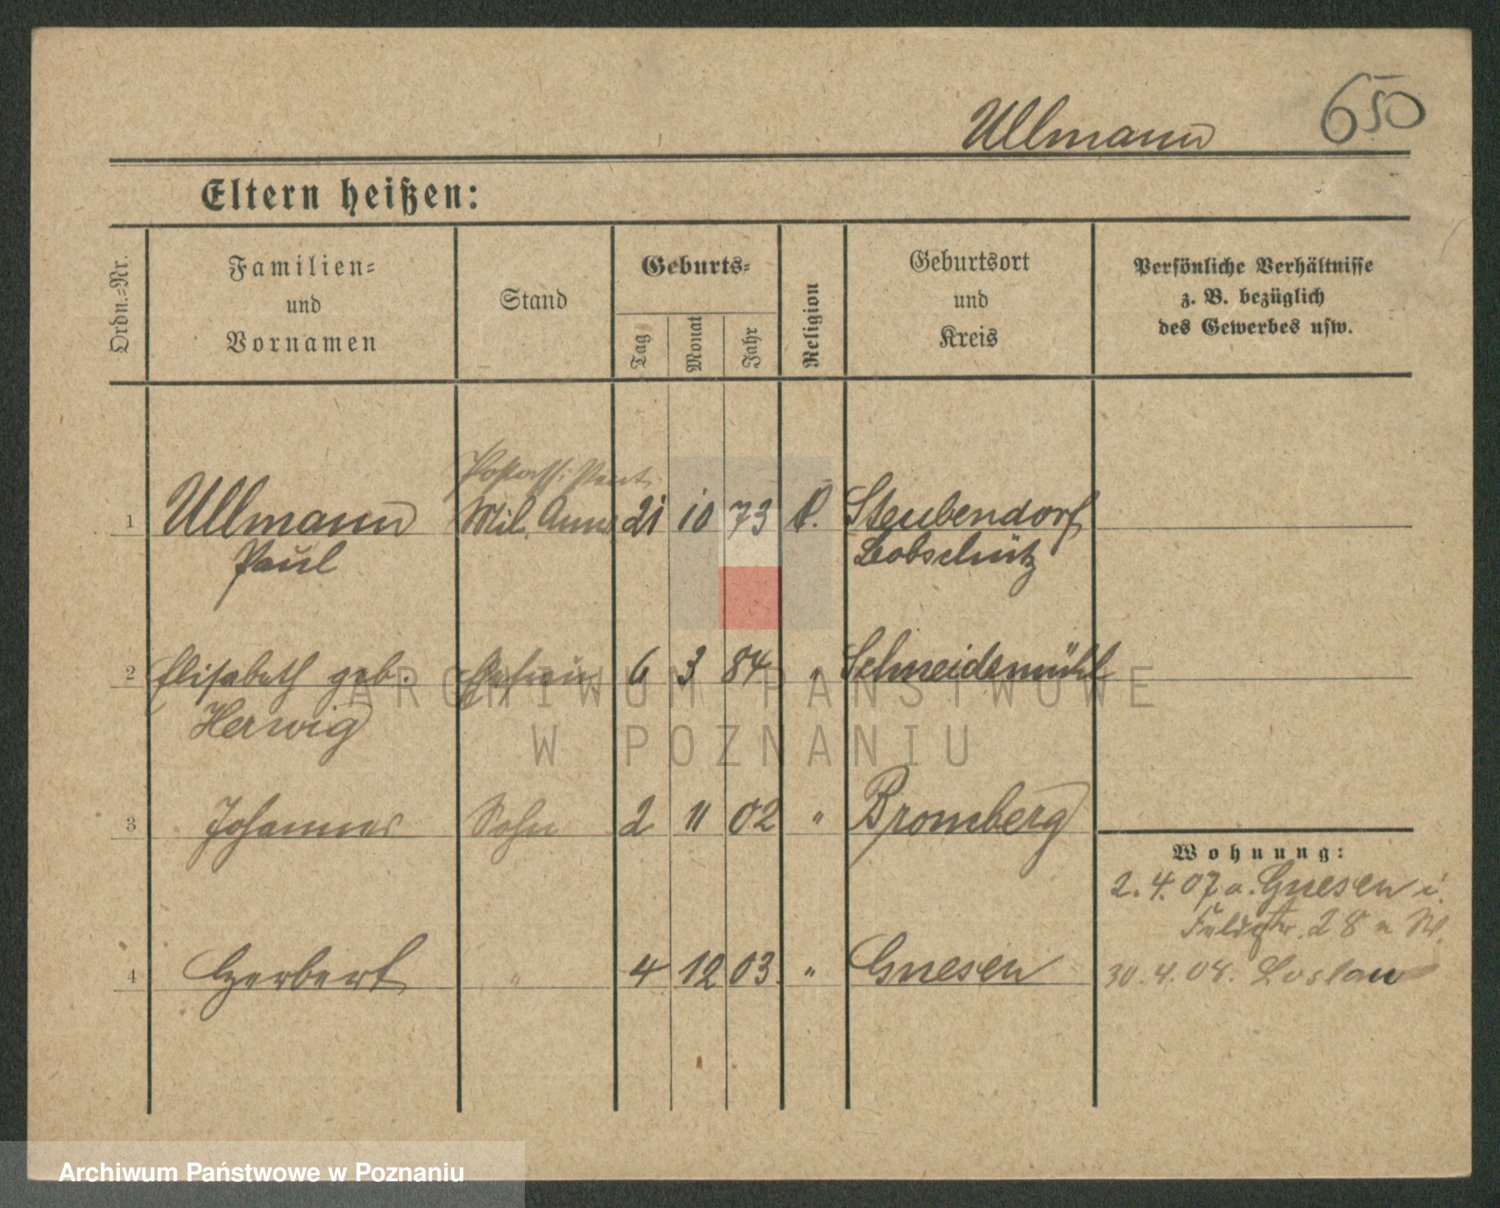 Ullmann 650
Eltern heißen:
Ordn.-Nr.
Familien-
und
Vornamen
Stand
Geburts-
Tag
Monat
Jahr
Religion
Geburtsort
und
Kreis
Persönliche Verhältnisse
z. B. bezüglich
des Gewerbes usw.
1 Ullmann Mil. Anw. 21 10 73 k. Steubendorf
Paul Leobschütz
2 Elisabeth geb. Ehefrau 6 3 84 " Schneidemühl
Herwig
3 Johannes Sohn 2 11 02 " Bromberg
Wohnung:
2. 4. 07 a. Gnesen i.
28
4 Herbert " 4 12 03 " Gnesen
30. 4. 08. Loslau
ARCHIWUM PAŃSTWOWE
W POZNANIU
Archiwum Państwowe w Poznaniu